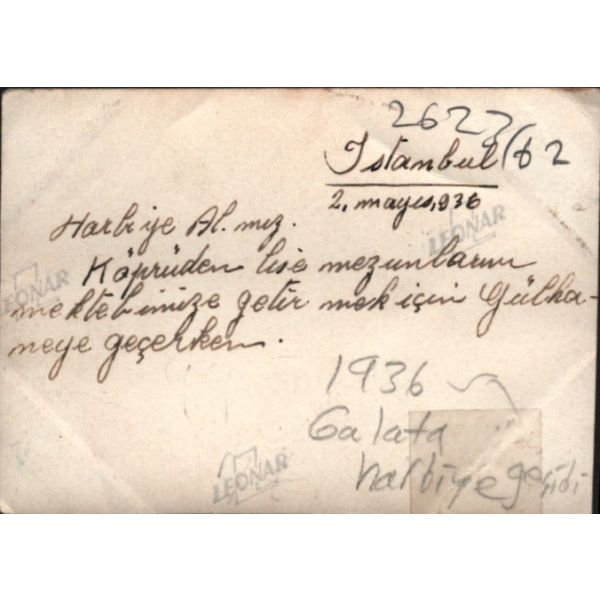 2623/62
Istanbul
2. mayıs, 936
Harbiye Al. mız.
Köprüden lise mezunlarını
mektebimize getirmek için Gülha-
neye geçerken.
1936
Galata
harbiye geçidi
LEONAR
LEONAR
LEONAR